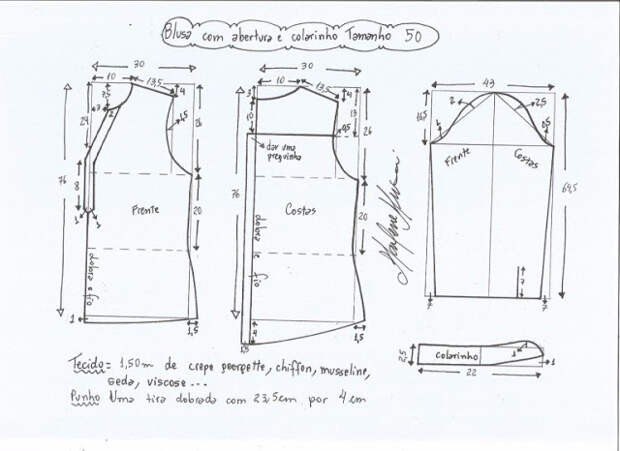 Blusa com abertura e colarinho Tamanho 50
30
10
13,5
4
7,5
7
2
24
1,5
26
76
8
20
1
1
Frente
dobra e fio
1
1,5
30
10
13,5
3
4
10
13
0,5
26
dar uma preguinha
76
20
Costas
dobra e fio
1,5
4
1,5
43
2
2,5
16,5
1
0,5
Frente
Costas
64,5
7
7
7
2,5
colarinho
1
1
1
22
Tecido = 1,50m de crepe georgette, chiffon, musseline,
seda, viscose ...
Punho Uma tira dobrada com 23,5cm por 4 cm